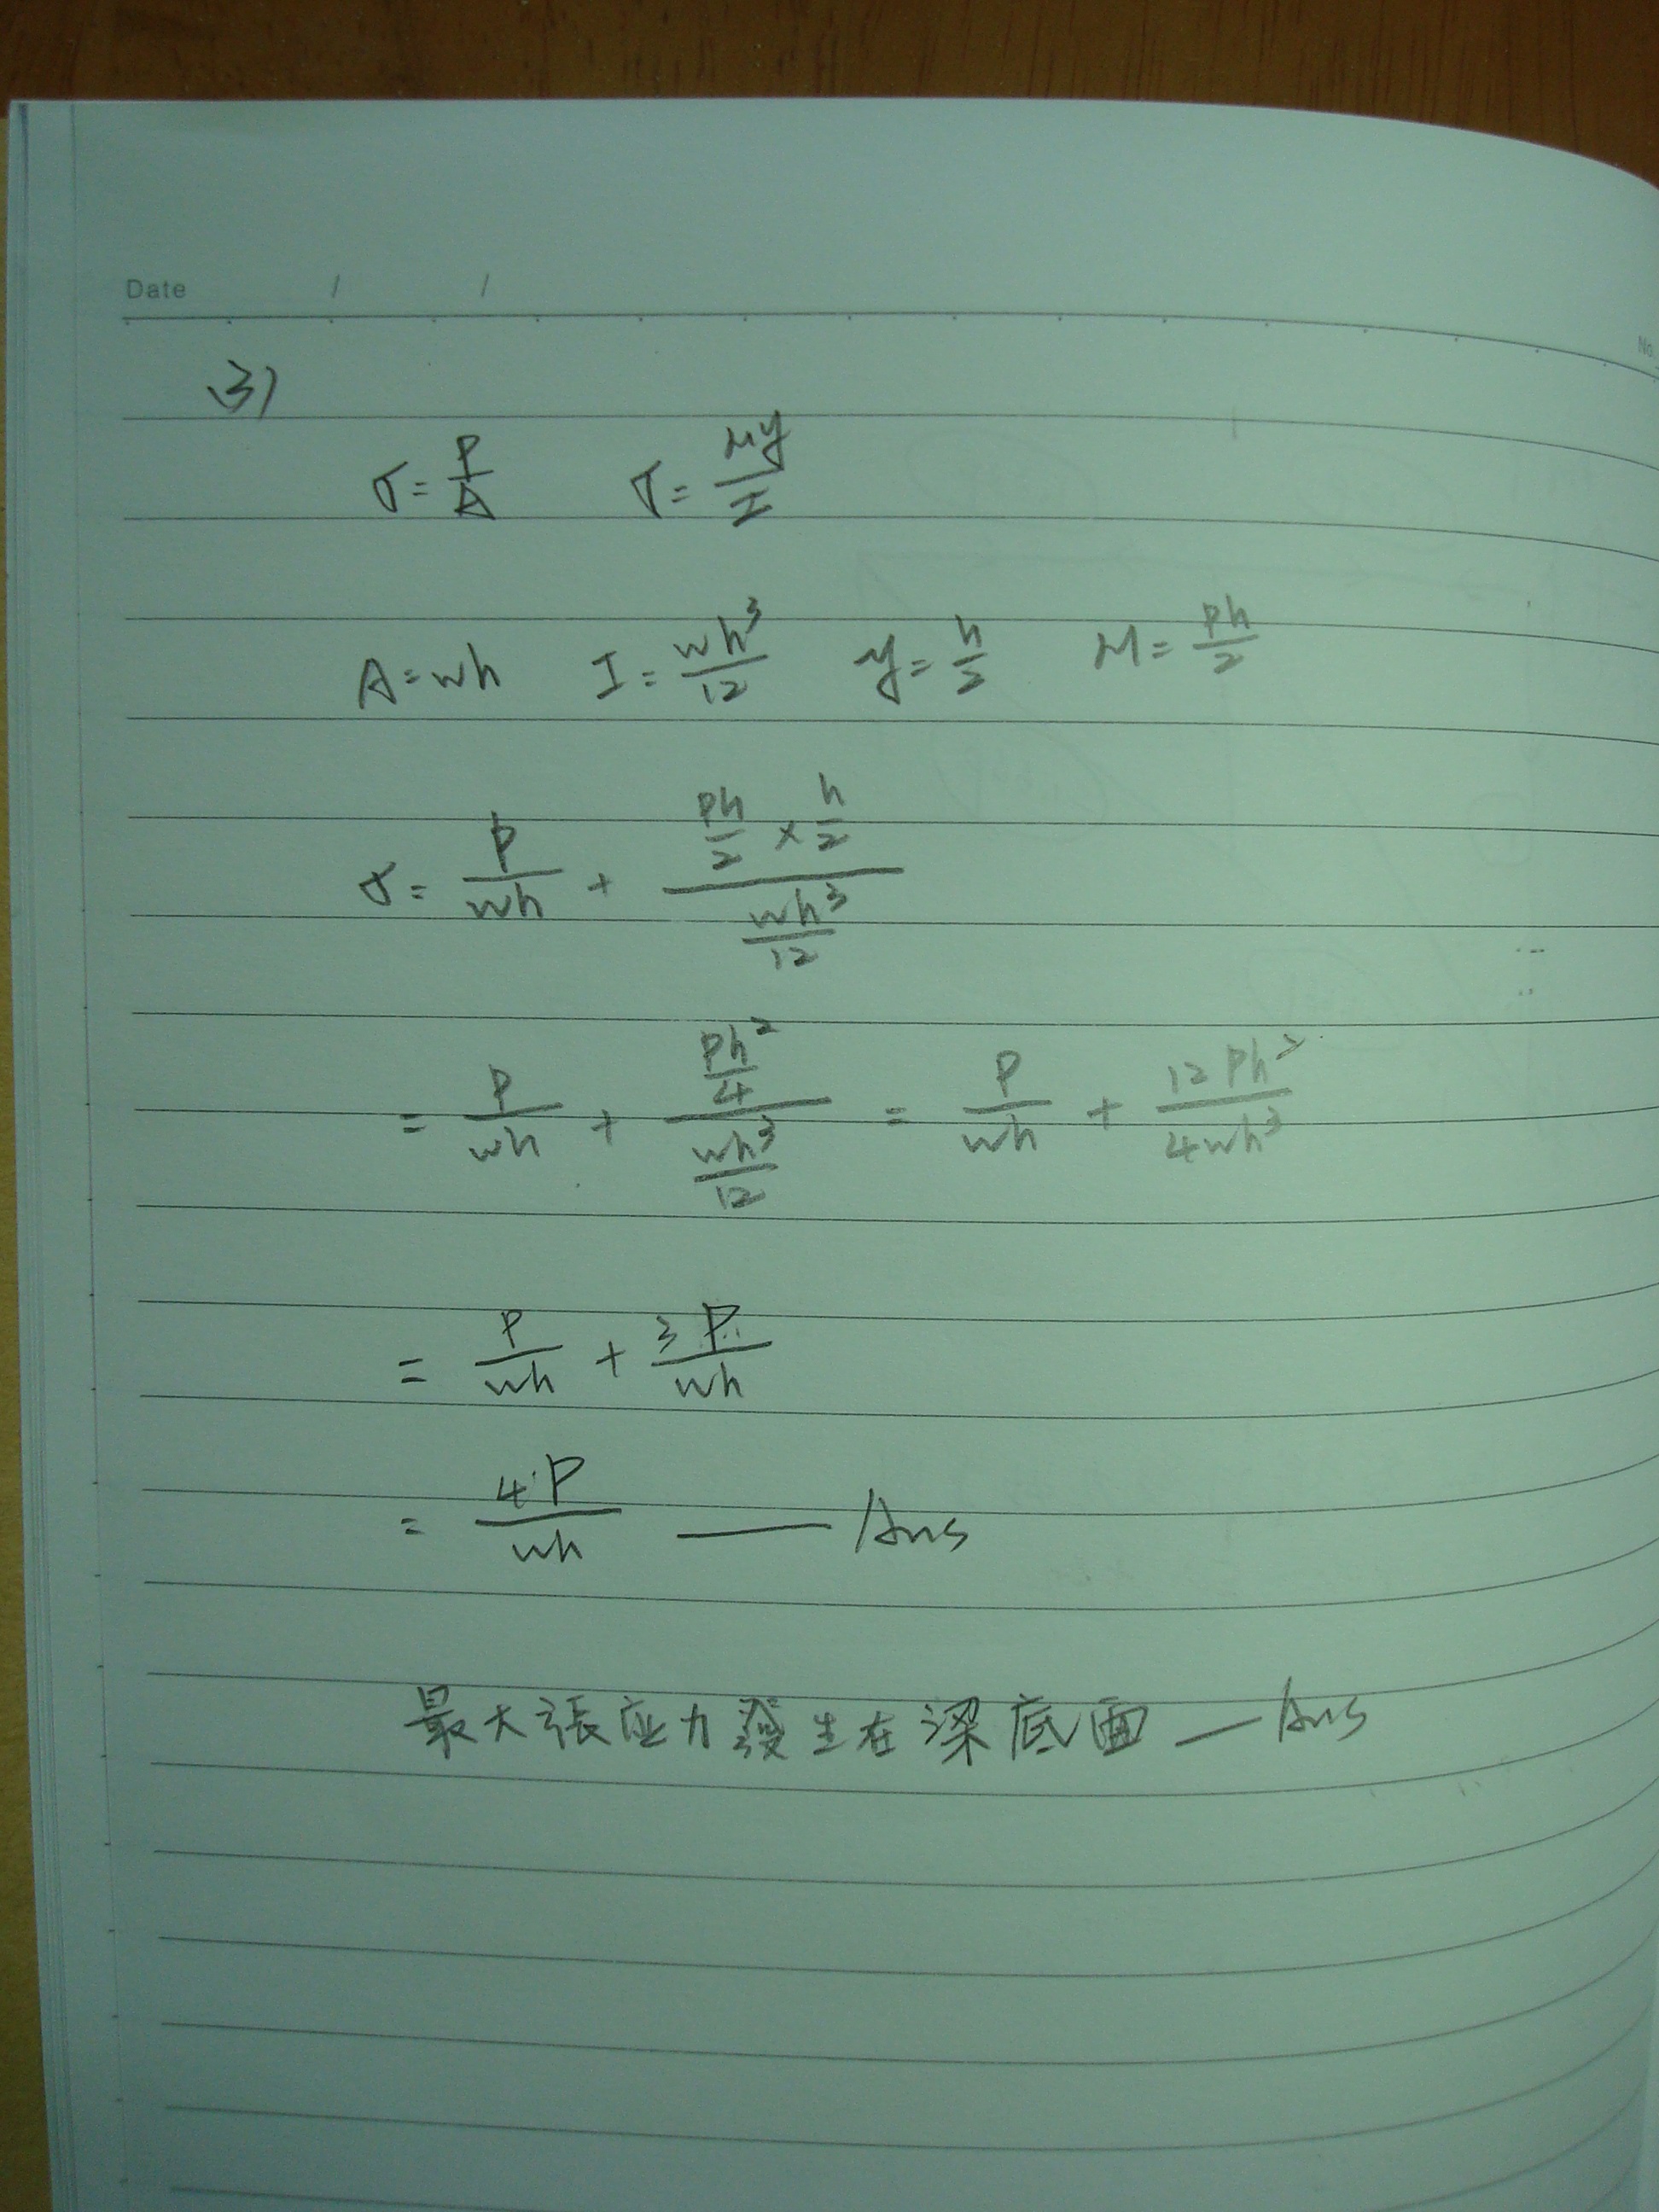 Date / /
No.
3)
σ = P/A σ = My/I
A = wh I = wh³/12 y = h/2 M = Ph/2
σ = P/wh + (Ph/2 × h/2)/(wh³/12)
= P/wh + (Ph²/4)/(wh³/12) = P/wh + 12Ph²/4wh³
= P/wh + 3P/wh
= 4P/wh — Ans
最大張应力發生在梁底面 — Ans